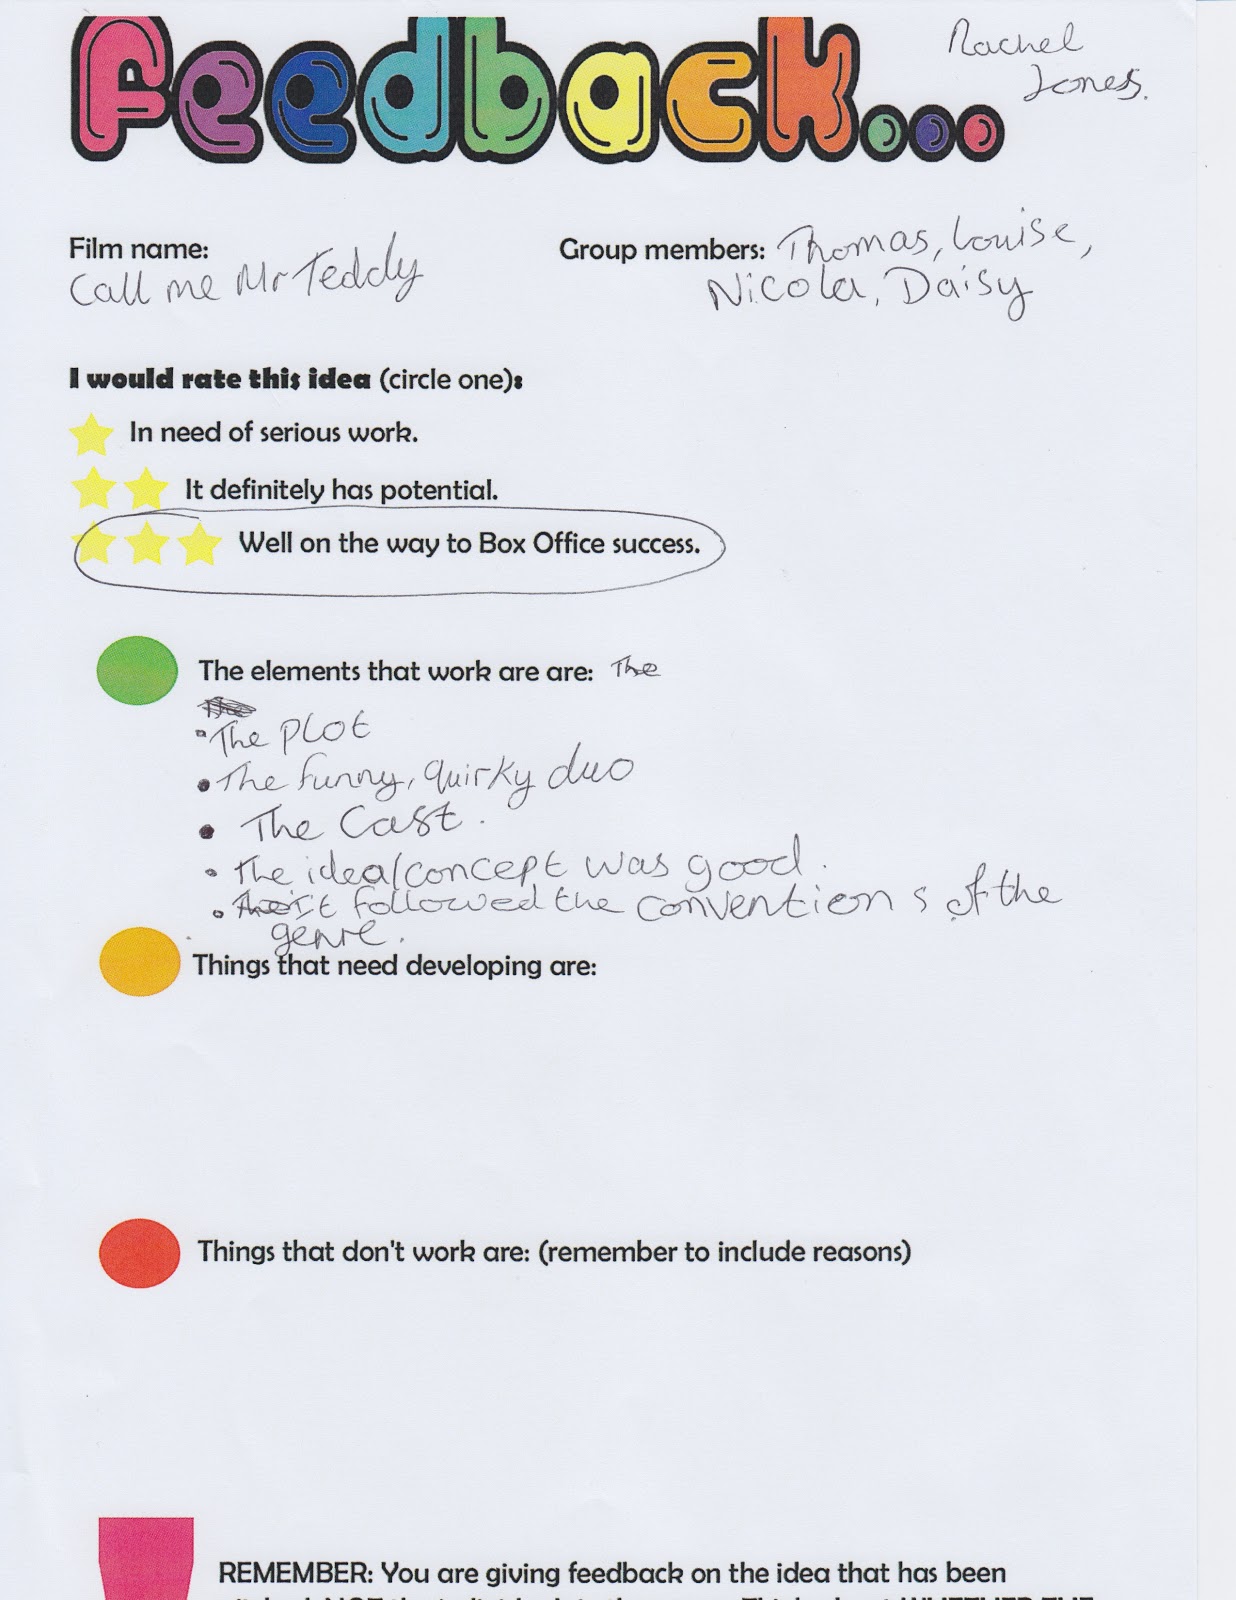 Feedback...
Rachel
Jones.
Film name:
Call me Mr Teddy
Group members: Thomas, Louise,
Nicola, Daisy
I would rate this idea (circle one):
In need of serious work.
It definitely has potential.
Well on the way to Box Office success.
The elements that work are are: The
The
• The Plot
• The funny, quirky duo
• The Cast.
• The idea/concept was good.
• It followed the conventions of the
genre.
Things that need developing are:
Things that don't work are: (remember to include reasons)
REMEMBER: You are giving feedback on the idea that has been